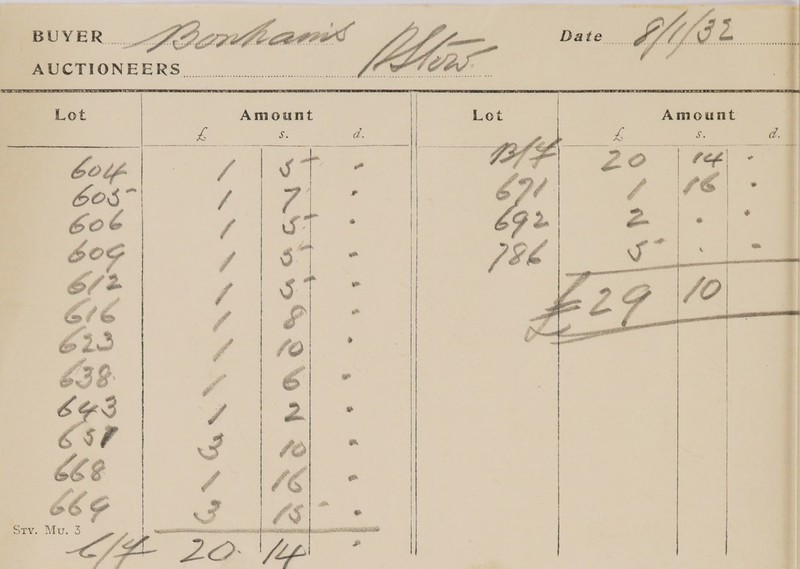 BUYER Bonhams Date 8/1/32
AUCTIONEERS
Lot Amount
£ s. d.
604 1 5 "
605 1 7 "
606 1 5 "
609 1 5 "
612 1 5 "
616 1 8 "
623 1 10 "
638 1 6 "
643 1 2 "
657 3 10 "
668 1 16 "
669 3 15 "
STY. MU. 3
C/F 20 14 "
Lot Amount
£ s. d.
B/F 20 14 "
671 1 16 "
692 2 " "
786 5 " "
£29 10